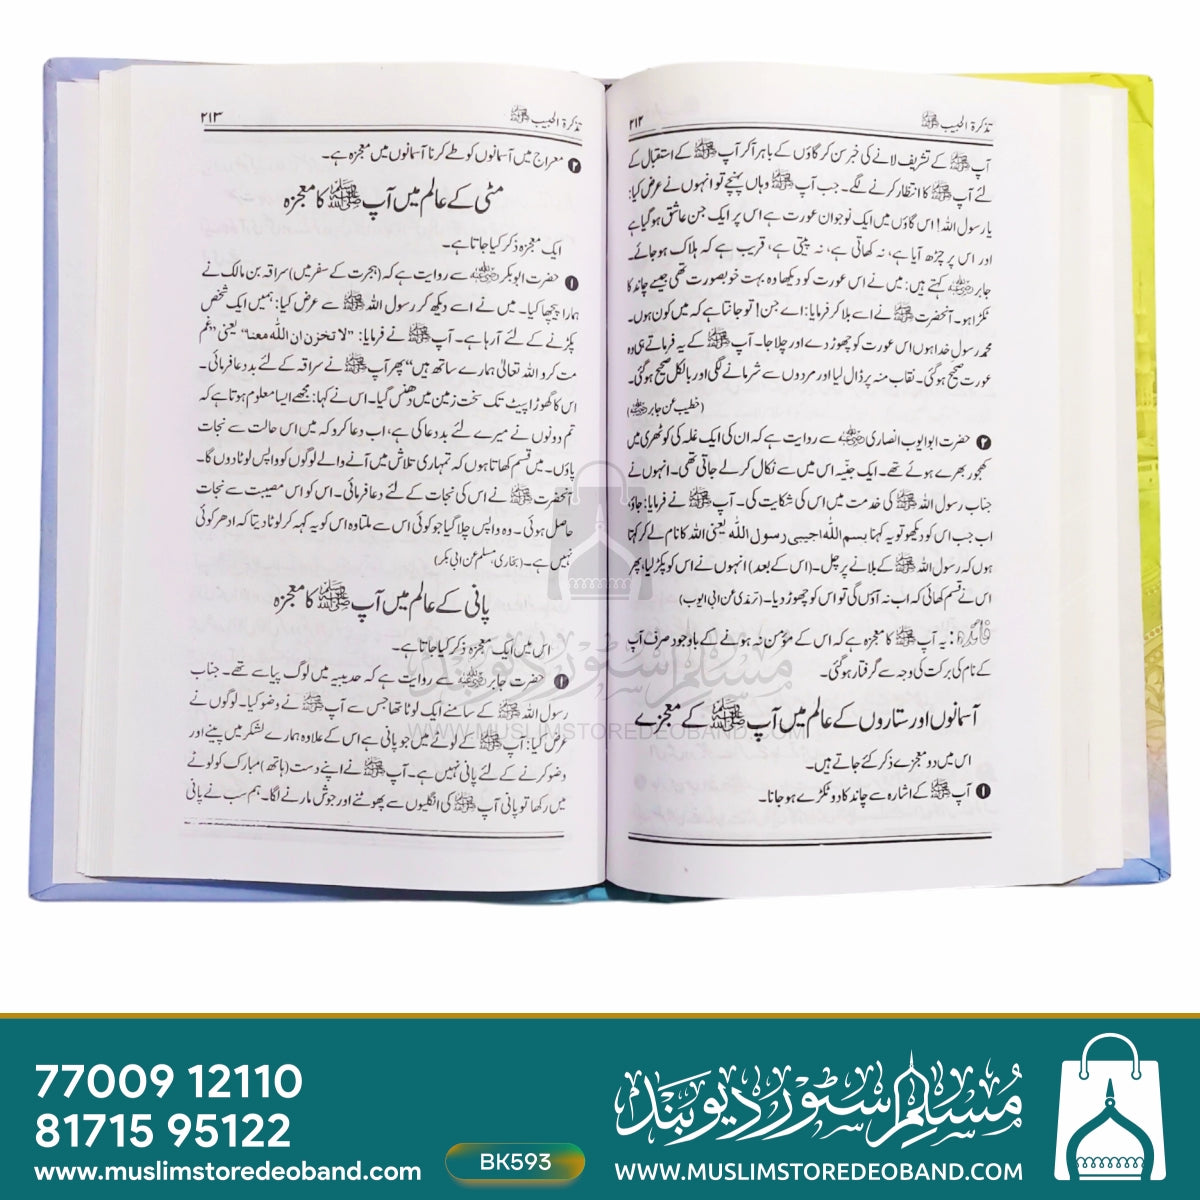 تذکرۃ الحبیب ﷺ ۲۱۲
آپ ﷺ کے تشریف لانے کی خبر سن کر گاؤں کے باہر آ کر آپ ﷺ کے استقبال کے
لئے آپ ﷺ کا انتظار کرنے لگے۔ جب آپ ﷺ وہاں پہنچے تو انہوں نے عرض کیا:
یا رسول اللہ! اس گاؤں میں ایک نوجوان عورت ہے اس پر ایک جن عاشق ہو گیا ہے
اور اس پر چڑھ آیا ہے، نہ کھاتی ہے، نہ پیتی ہے، قریب ہے کہ ہلاک ہو جائے۔
جابر ؓ کہتے ہیں: میں نے اس عورت کو دیکھا وہ بہت خوبصورت تھی جیسے چاند کا
ٹکڑا ہو۔ آنحضرت ﷺ نے اسے بلا کر فرمایا: اے جن! تو جانتا ہے کہ میں کون ہوں۔
محمد رسول خدا ہوں اس عورت کو چھوڑ دے اور چلا جا۔ آپ ﷺ کے یہ فرماتے ہی وہ
عورت صحیح ہو گئی۔ نقاب منہ پر ڈال لیا اور مردوں سے شرمانے لگی اور بالکل صحیح ہو گئی۔
(خطیب عن جابر ؓ)
❷ حضرت ابو ایوب انصاری ؓ سے روایت ہے کہ ان کی ایک غلہ کی کوٹھری میں
کھجور بھرے ہوئے تھے۔ ایک جنّیہ اس میں سے نکال کر لے جاتی تھی۔ انہوں نے
جناب رسول اللہ ﷺ کی خدمت میں اس کی شکایت کی۔ آپ ﷺ نے فرمایا: جاؤ،
اب جب اس کو دیکھو تو یہ کہنا بسم اللّٰہ اجیبی رسول اللّٰہ یعنی اللہ کا نام لے کر کہتا
ہوں کہ رسول اللہ ﷺ کے بلانے پر چل۔ (اس کے بعد) انہوں نے اس کو پکڑ لیا، پھر
اس نے قسم کھائی کہ اب نہ آؤں گی تو اس کو چھوڑ دیا۔ (ترمذی عن ابی ایوب)
فائدہ: یہ آپ ﷺ کا معجزہ ہے کہ اس کے مؤمن نہ ہونے کے باوجود صرف آپ
کے نام کی برکت کی وجہ سے گرفتار ہو گئی۔
آسمانوں اور ستاروں کے عالم میں آپ ﷺ کے معجزے
اس میں دو معجزے ذکر کئے جاتے ہیں۔
❶ آپ ﷺ کے اشارہ سے چاند کا دو ٹکڑے ہو جانا۔
تذکرۃ الحبیب ﷺ ۲۱۳
❷ معراج میں آسمانوں کو طے کرنا آسمانوں میں معجزہ ہے۔
مٹی کے عالم میں آپ ﷺ کا معجزہ
ایک معجزہ ذکر کیا جاتا ہے۔
❶ حضرت ابوبکر ؓ سے روایت ہے کہ (ہجرت کے سفر میں) سراقہ بن مالک نے
ہمارا پیچھا کیا۔ میں نے اسے دیکھ کر رسول اللہ ﷺ سے عرض کیا: ہمیں ایک شخص
پکڑنے کے لئے آ رہا ہے۔ آپ ﷺ نے فرمایا: "لا تحزن ان اللّٰہ معنا" یعنی "غم
مت کرو اللہ تعالیٰ ہمارے ساتھ ہیں" پھر آپ ﷺ نے سراقہ کے لئے بددعا فرمائی۔
اس کا گھوڑا پیٹ تک سخت زمین میں دھنس گیا۔ اس نے کہا: مجھے ایسا معلوم ہوتا ہے کہ
تم دونوں نے میرے لئے بددعا کی ہے، اب دعا کرو کہ میں اس حالت سے نجات
پاؤں۔ میں قسم کھاتا ہوں کہ تمہاری تلاش میں آنے والے لوگوں کو واپس لوٹا دوں گا۔
آنحضرت ﷺ نے اس کی نجات کے لئے دعا فرمائی۔ اس کو اس مصیبت سے نجات
حاصل ہوئی۔ وہ واپس چلا گیا جو کوئی اس سے ملتا وہ اس کو یہ کہہ کر لوٹا دیتا کہ ادھر کوئی
نہیں ہے۔ (بخاری، مسلم عن ابی بکر)
پانی کے عالم میں آپ ﷺ کا معجزہ
اس میں ایک معجزہ ذکر کیا جاتا ہے۔
❶ حضرت جابر ؓ سے روایت ہے کہ حدیبیہ میں لوگ پیاسے تھے۔ جناب
رسول اللہ ﷺ کے سامنے ایک لوٹا تھا جس سے آپ ﷺ نے وضو کیا۔ لوگوں نے
عرض کیا: آپ ﷺ کے لوٹے میں جو پانی ہے اس کے علاوہ ہمارے لشکر میں پینے اور
وضو کرنے کے لئے پانی نہیں ہے۔ آپ ﷺ نے اپنے دست (ہاتھ) مبارک کو لوٹے
میں رکھا تو پانی آپ ﷺ کی انگلیوں سے پھوٹنے اور جوش مارنے لگا۔ ہم سب نے پانی
مسلم سٹور دیوبند
WWW.MUSLIMSTOREDEOBAND.COM
77009 12110
81715 95122
www.muslimstoredeoband.com
BK593
مسلم سٹور دیوبند
WWW.MUSLIMSTOREDEOBAND.COM